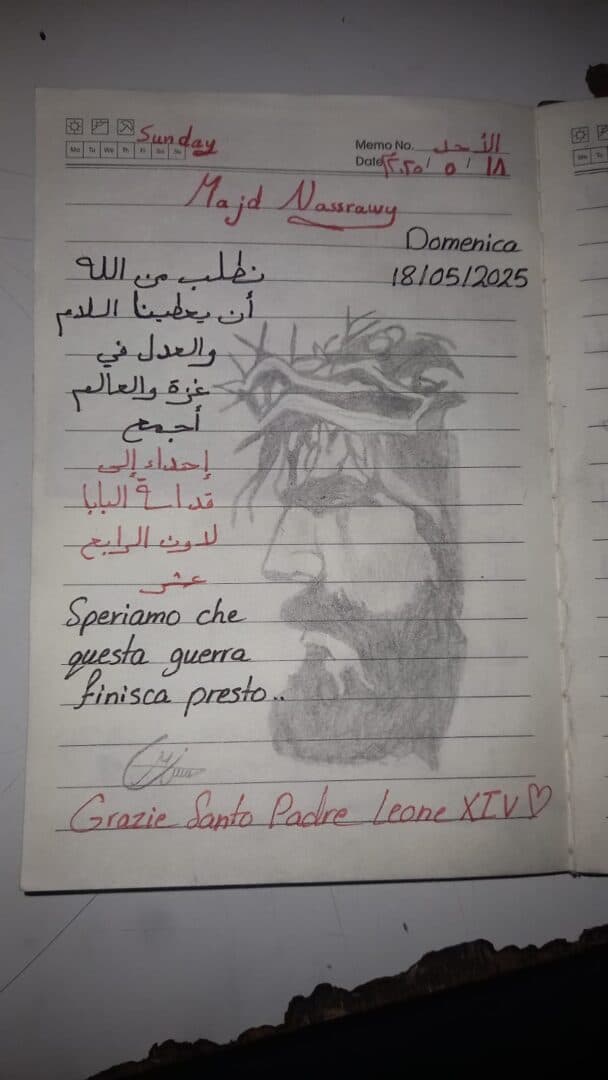 Sunday
Mo Tu We Th Fr Sa Su
Memo No. الأحد
Date ٢٠٢٥ / ٥ / ١٨
Majd Nassrawy
Domenica
18/05/2025
نطلب من الله
أن يعطينا السلام
والعدل في
غزة والعالم
أجمع
إهداء إلى
قداسة البابا
لاون الرابع
عشر
Speriamo che
questa guerra
finisca presto..
Grazie Santo Padre Leone XIV♡